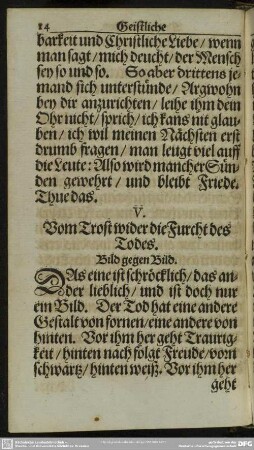 14 Geistliche
barkeit und Christliche Liebe / wenn
man sagt / mich deucht / der Mensch
sey so und so. So aber drittens je-
mand sich unterstünde / Argwohn
bey dir anzurichten / leihe ihm dein
Ohr nicht / sprich / ich kans nit glau-
ben / ich wil meinen Nächsten erst
drumb fragen / man leugt viel auff
die Leute: Also wird mancher Sün-
den gewehrt / und bleibt Friede.
Thue das.
V.
Vom Trost wider die Furcht des
Todes.
Bild gegen Bild.
DAs eine ist schröcklich / das an-
der lieblich / und ist doch nur
ein Bild. Der Tod hat eine andere
Gestalt von fornen / eine andere von
hinten. Vor ihm her geht Traurig-
keit / hinten nach folgt Freude / vorn
schwärtz / hinten weiß. Vor ihm her
geht